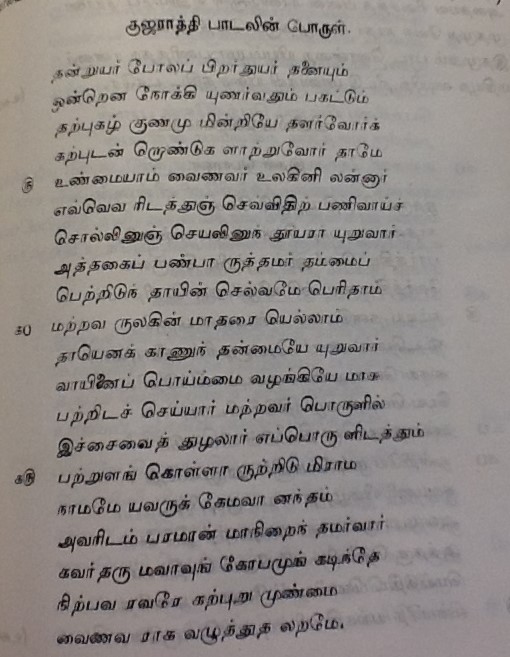 குஜராத்தி பாடலின் பொருள்.
தன்றுயர் போலப் பிறர்துயர் தனையும்
ஒன்றென நோக்கி யுணர்வதும் பகட்டும்
தற்புகழ் குணமு மின்றியே தளர்வோர்க்
கற்புடன் றொண்டுக ளாற்றுவோர் தாமே
௫ உண்மையாம் வைணவர் உலகினி லன்னார்
எவ்வெவ ரிடத்துஞ் செவ்விதிற் பணிவாய்ச்
சொல்லினுஞ் செயலினுந் தூயரா யுறுவார்
அத்தகைப் பண்பா ருத்தமர் தம்மைப்
பெற்றிடுந் தாயின் செல்வமே பெரிதாம்
௧0 மற்றவ ருலகின் மாதரை யெல்லாம்
தாயெனக் காணுந் தன்மையே யுறுவார்
வாயினைப் பொய்ம்மை வழங்கியே மாசு
பற்றிடச் செய்யார் மற்றவர் பொருளில்
இச்சைவைத் துழலார் எப்பொரு ளிடத்தும்
௧௫ பற்றுளங் கொள்ளா ருற்றிடு மிராம
நாமமே யவருக் கேமவா னந்தம்
அவரிடம் பரமான் மாநிறைந் தமர்வார்
கவர்தரு மவாவுங் கோபமுங் கடிந்தே
நிற்பவ ரவரே கற்புறு முண்மை
வைணவ ராக வழுத்துத லறமே.